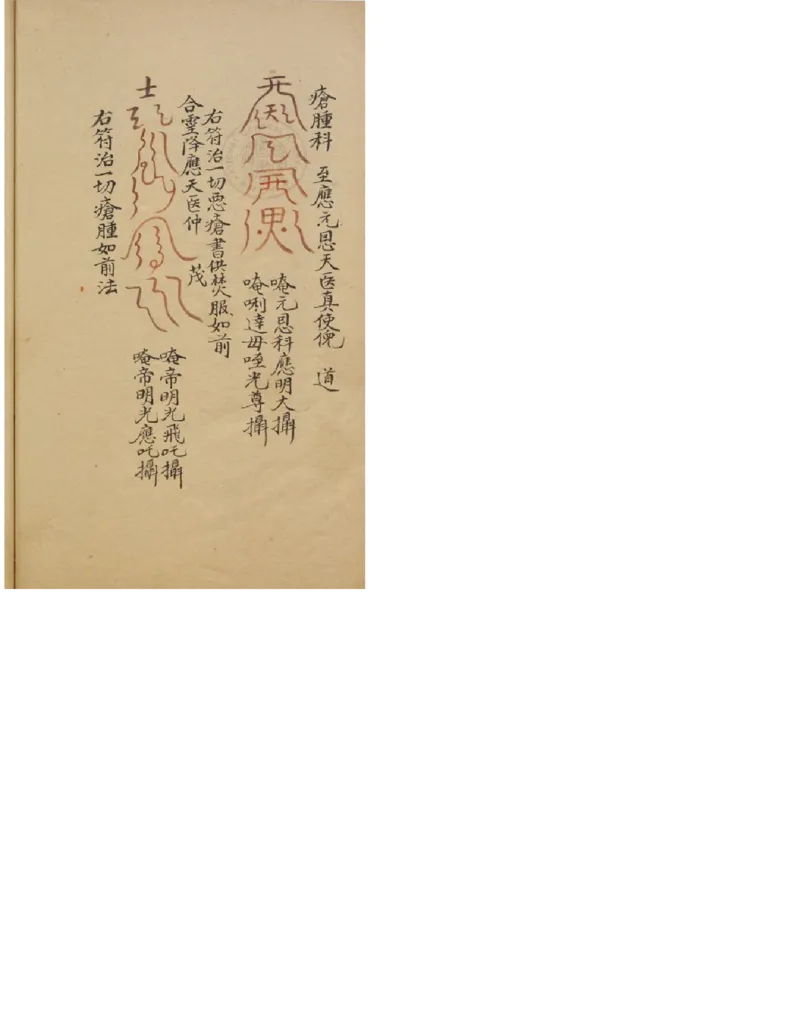 瘡腫科　至應元恩天医真使俛　道
唵元恩科應明大攝
唵唎達毋唑光尊攝
右符治一切悪瘡書供焚服如前
合霊降應天医仲　茂
士
唵帝明光飛吒攝
唵帝明光應吒攝
右符治一切瘡腫如前法